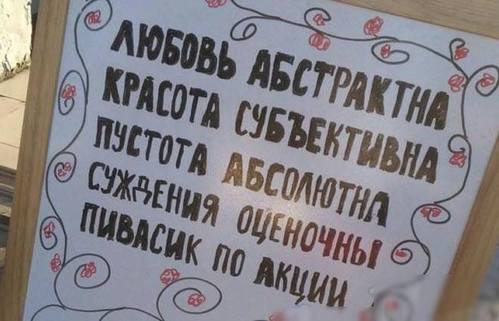 ЛЮБОВЬ АБСТРАКТНА
КРАСОТА СУБЪЕКТИВНА
ПУСТОТА АБСОЛЮТНА
СУЖДЕНИЯ ОЦЕНОЧНЫ
ПИВАСИК ПО АКЦИИ